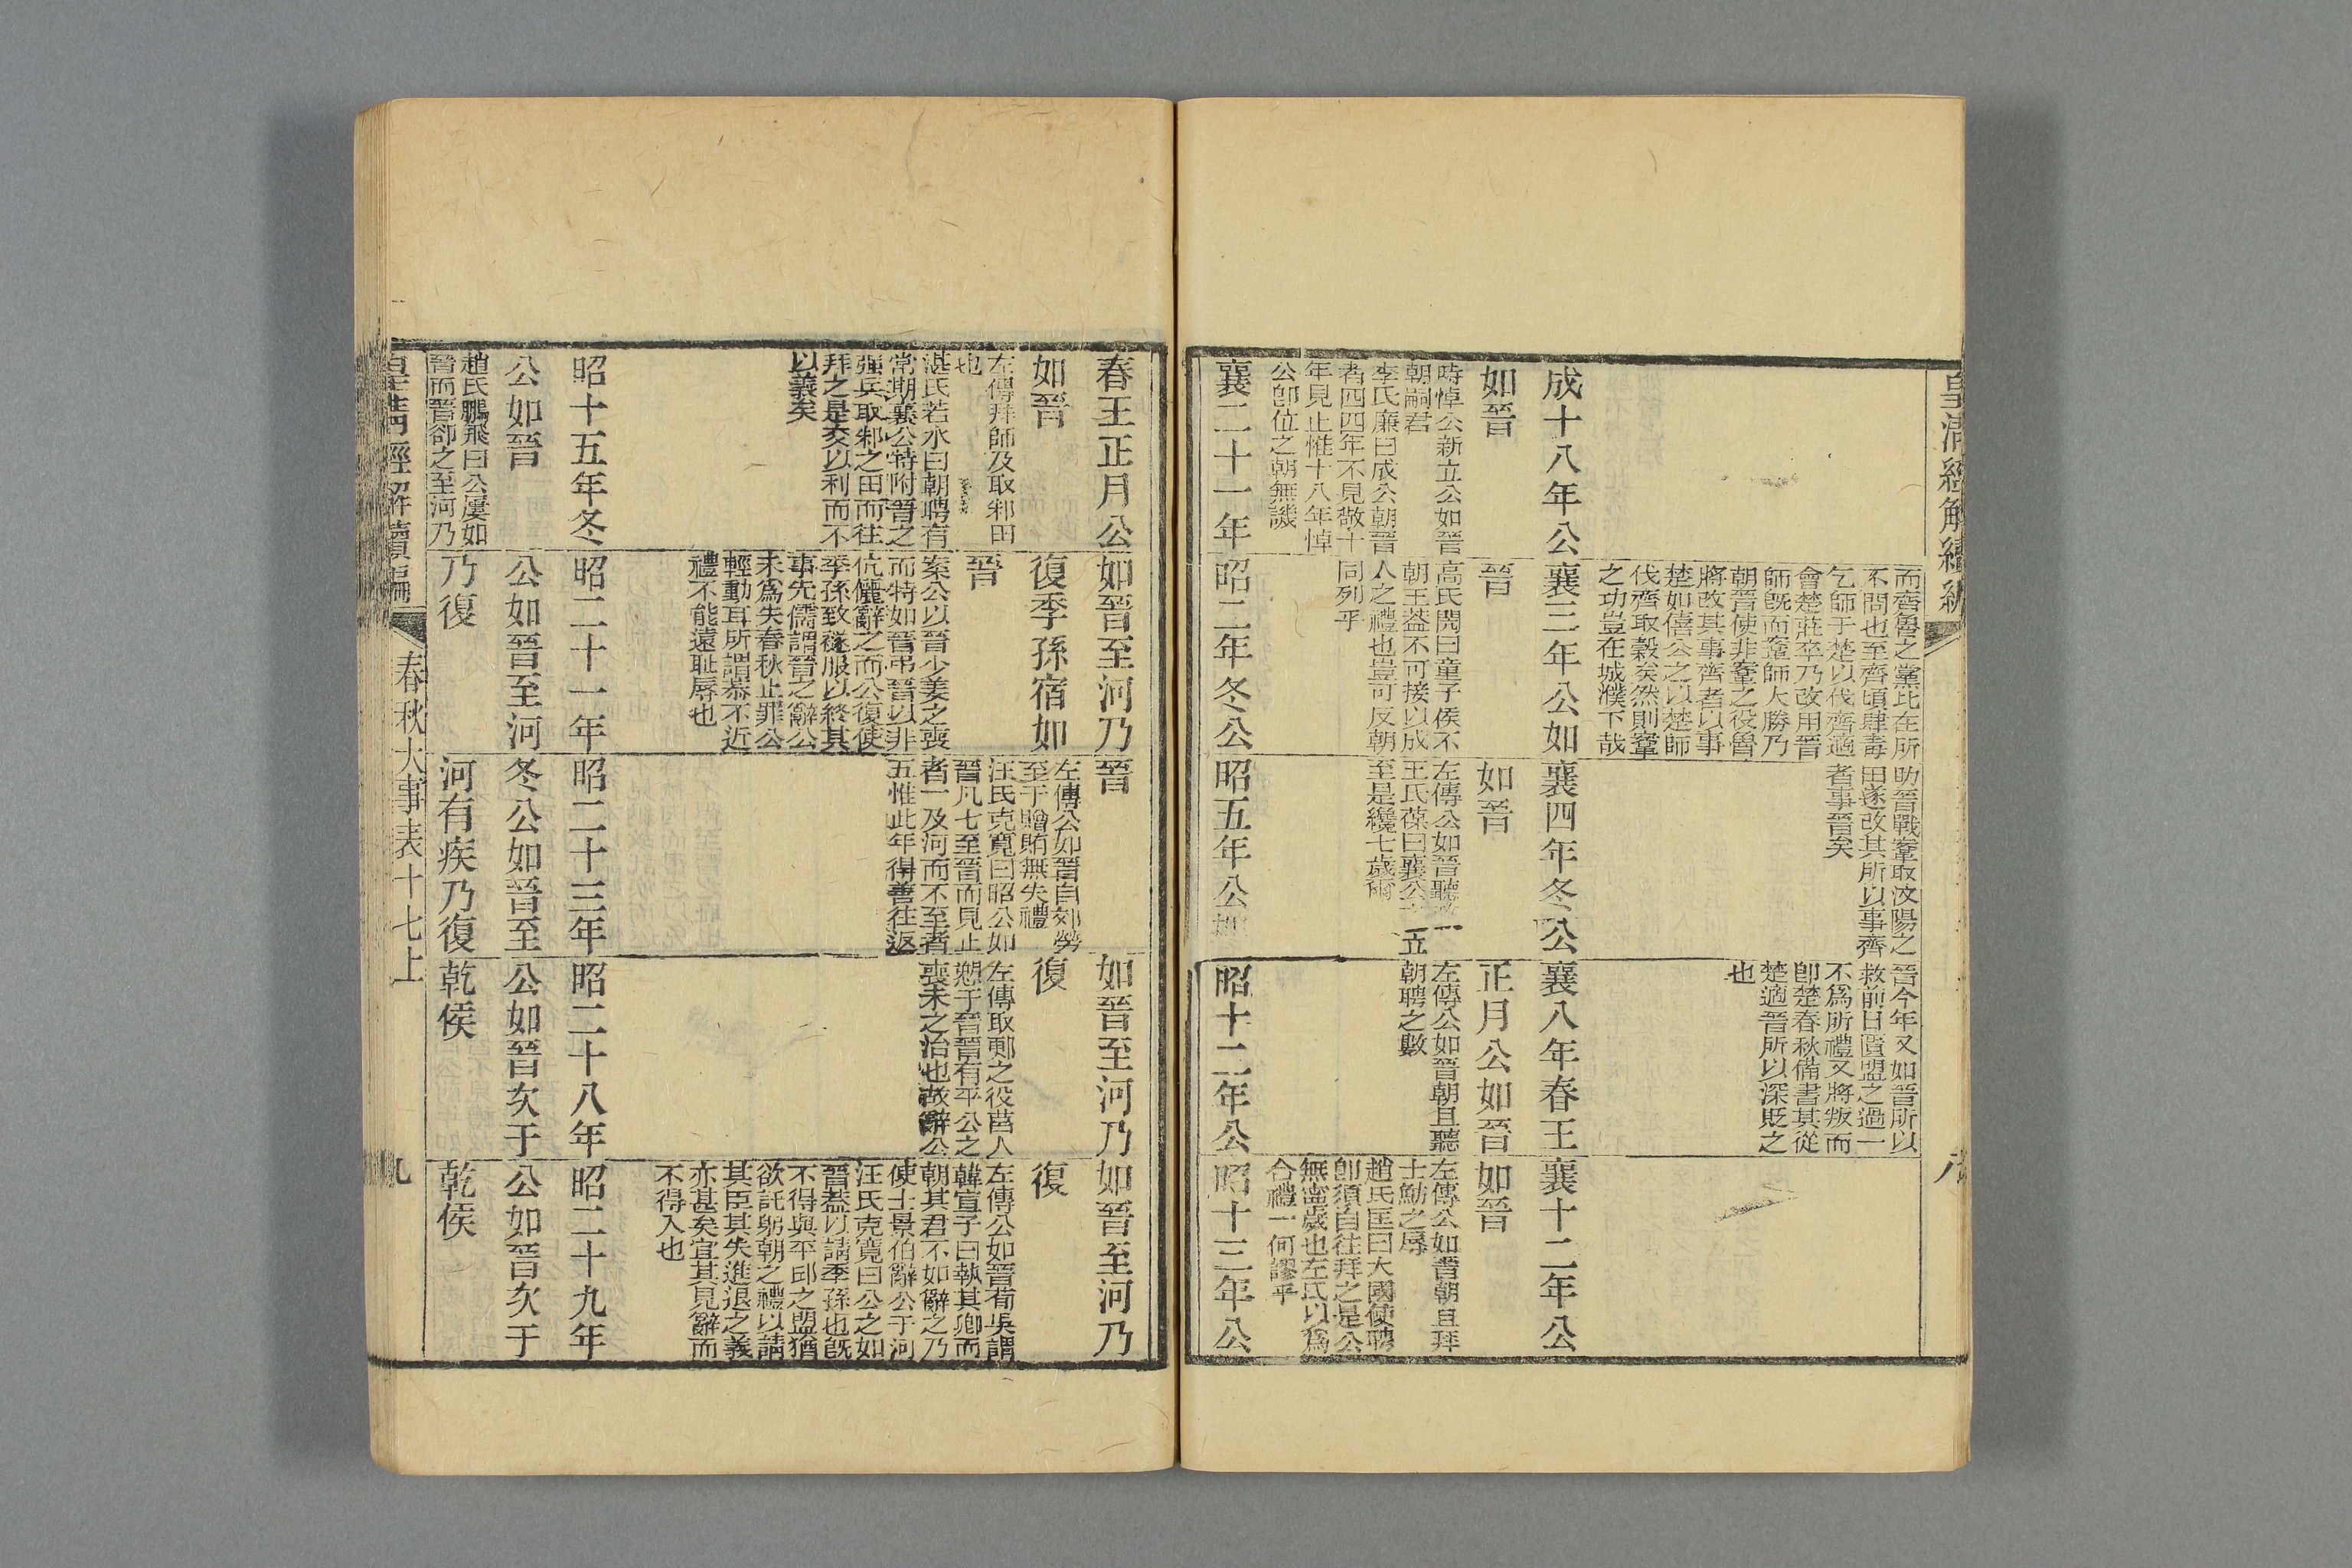 皇清經解續編
八
而齊魯之黨此在所
不問也至齊頃肆毒
乞師于楚以伐齊適
會楚莊卒乃改用晉
師旣而鞌師大勝乃
朝晉使非鞌之役魯
將改其事齊者以事
楚如僖公之以楚師
伐齊取穀矣然則鞌
之功豈在城濮下哉
助晉戰鞌取汶陽之
田遂改其所以事齊
者事晉矣
晉今年又如晉所以
救前日匱盟之過一
不爲所禮又將叛而
卽楚春秋備書其從
楚適晉所以深貶之
也
成十八年公
如晉
時悼公新立公如晉
朝嗣君
李氏廉曰成公朝晉
者四四年不見敬十
年見止惟十八年悼
公卽位之朝無譏
襄三年公如
晉
高氏閌曰童子侯不
朝王葢不可接以成
人之禮也豈可反朝
同列乎
襄四年冬公
如晉
左傳公如晉聽政
王氏葆曰襄公立
至是纔七歲爾
襄八年春王
正月公如晉
左傳公如晉朝且聽
朝聘之數
襄十二年公
如晉
左傳公如晉朝且拜
士魴之辱
趙氏匡曰大國使聘
卽須自往拜之是公
無寧歲也左氏以爲
合禮一何謬乎
襄二十一年
昭二年冬公
昭五年公如
昭十二年公
昭十三年公
春王正月公
如晉
左傳拜師及取邾田
也
湛氏若水曰朝聘有
常期襄公特附晉之
强兵取邾之田而往
拜之是交以利而不
以義矣
如晉至河乃
復季孫宿如
晉
案公以晉少姜之喪
而特如晉弔晉以非
伉儷辭之而公復使
季孫致襚服以終其
事先儒謂晉之辭公
未爲失春秋止罪公
輕動耳所謂恭不近
禮不能遠耻辱也
晉
左傳公如晉自郊勞
至于贈賄無失禮
汪氏克寬曰昭公如
晉凡七至晉而見止
者一及河而不至者
五惟此年得善往返
如晉至河乃
復
左傳取郠之役莒人
愬于晉晉有平公之
喪未之治也故辭公
如晉至河乃
復
左傳公如晉荀吳謂
韓宣子曰執其卿而
朝其君不如辭之乃
使士景伯辭公于河
汪氏克寬曰公之如
晉葢以請季孫也旣
不得與平邱之盟猶
欲託躬朝之禮以請
其臣其失進退之義
亦甚矣宜其見辭而
不得入也
昭十五年冬
公如晉
趙氏鵬飛曰公屢如
晉而晉卻之至河乃
昭二十一年
公如晉至河
乃復
昭二十三年
冬公如晉至
河有疾乃復
昭二十八年
公如晉次于
乾侯
昭二十九年
公如晉次于
乾侯
皇淸經解續編
春秋大事表十七上
九